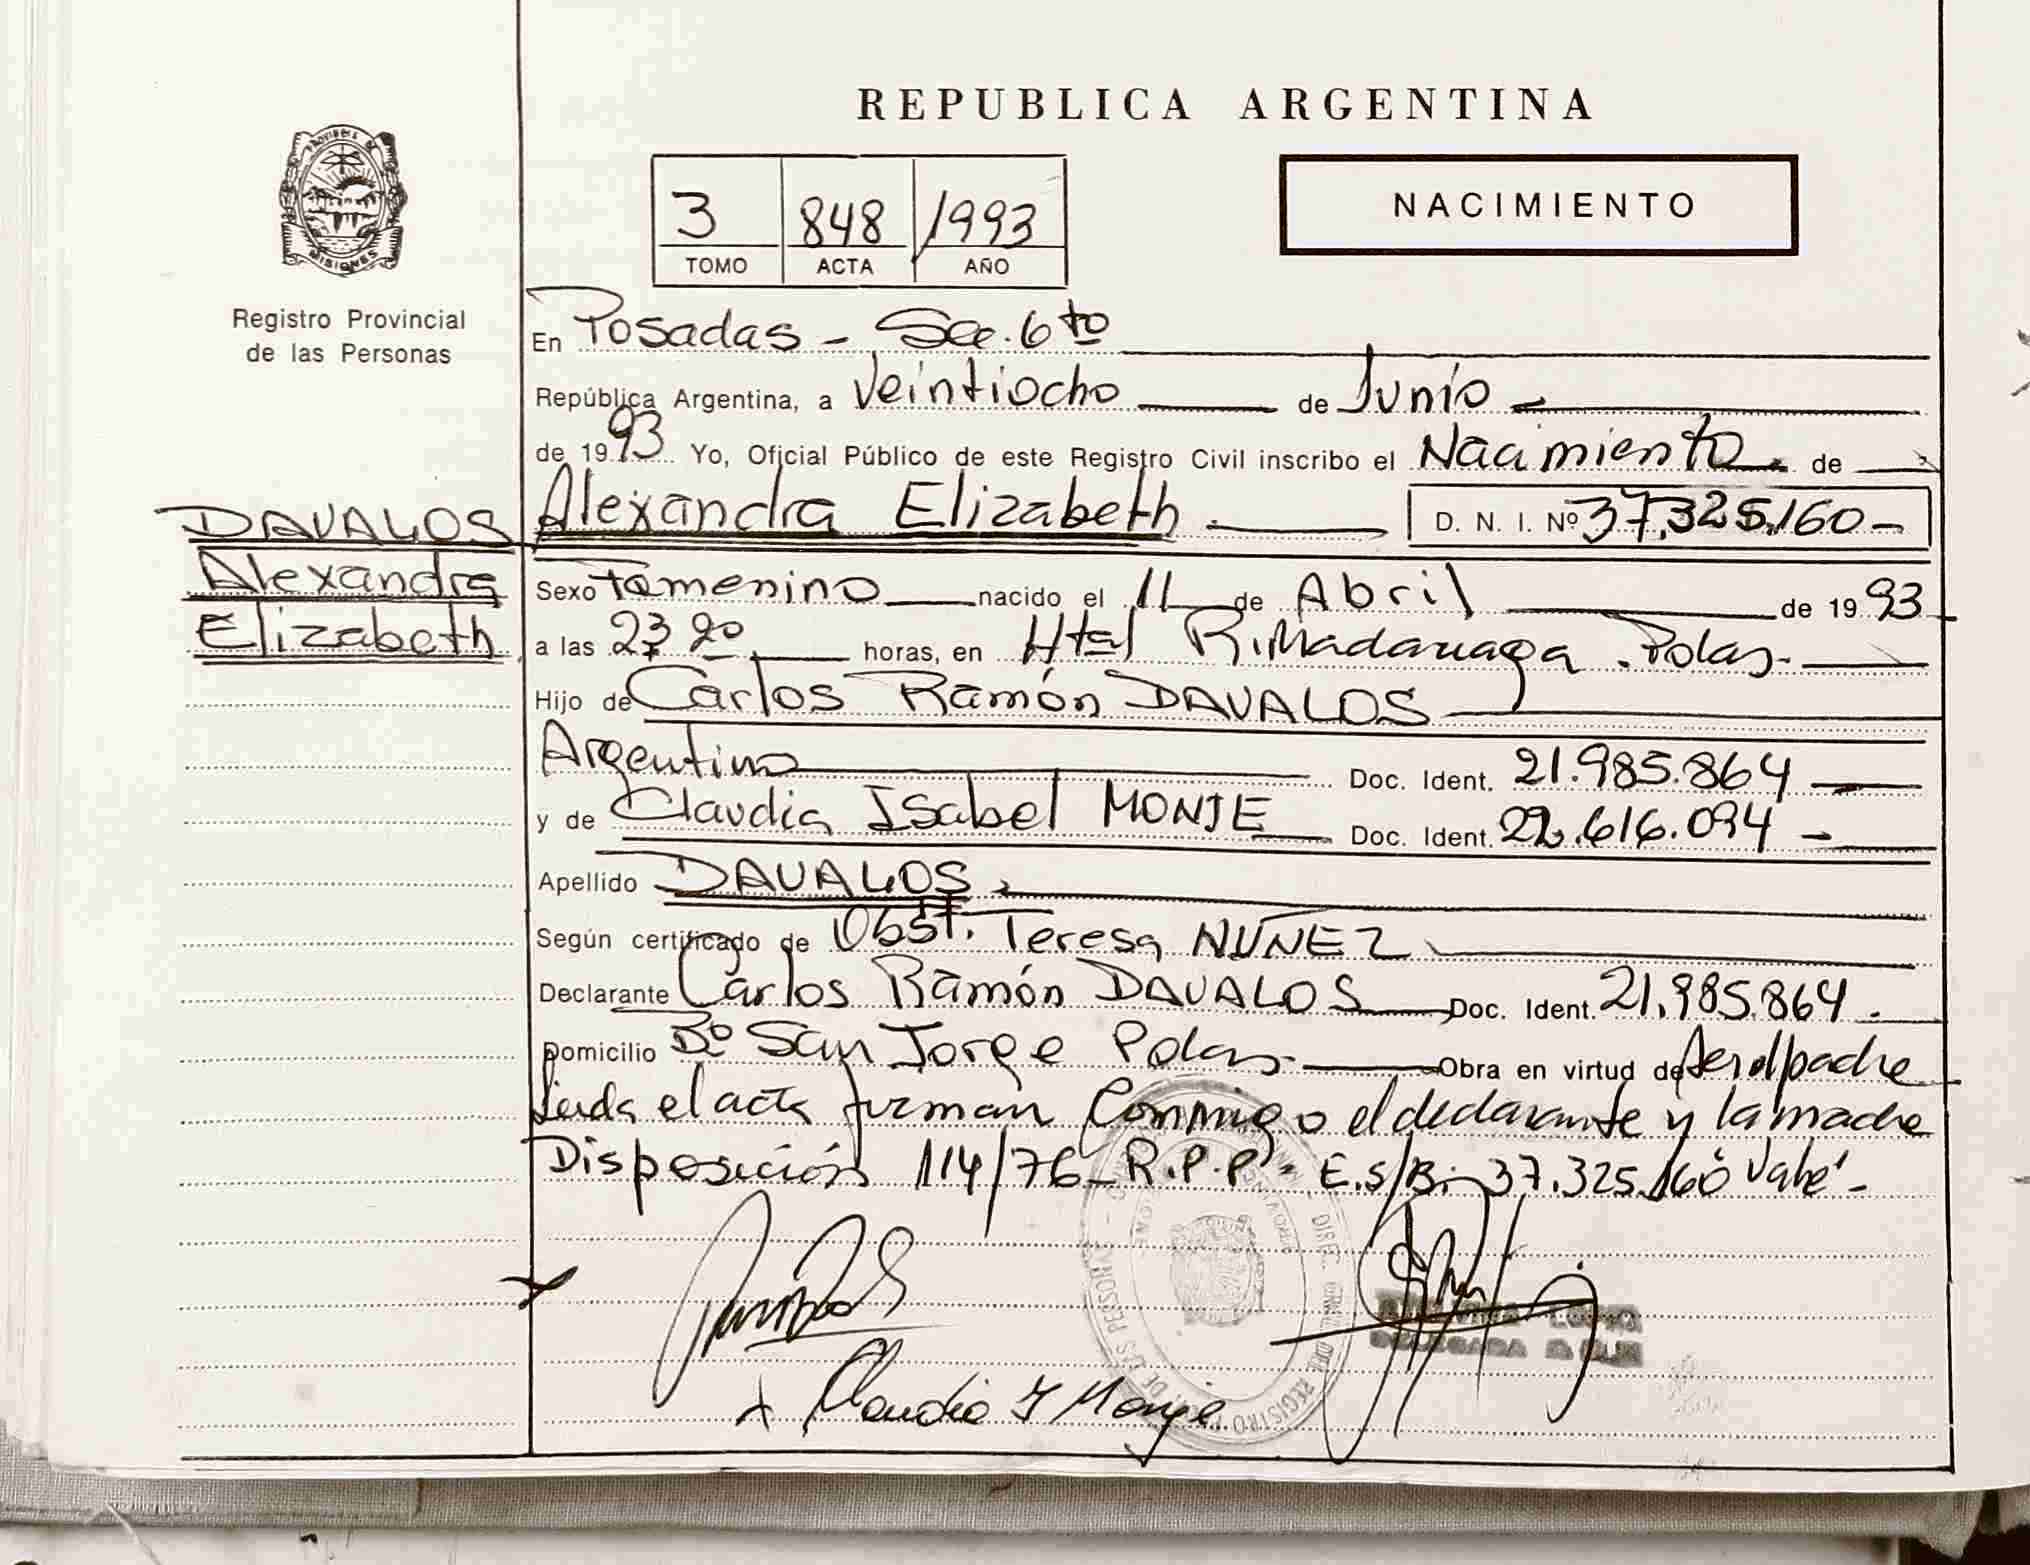 REPUBLICA ARGENTINA
NACIMIENTO
3 848 1993
TOMO ACTA AÑO
PROVINCIA DE
MISIONES
Registro Provincial
de las Personas
En Posadas - Sec. 6to
República Argentina, a Veintiocho de Junio
de 1993 Yo, Oficial Público de este Registro Civil inscribo el Nacimiento de
DAVALOS Alexandra Elizabeth. D. N. I. Nº 37.325.160-
Alexandra
Elizabeth
Sexo Femenino nacido el 11 de Abril de 1993
a las 23 20 horas, en Htal R. Madariaga. Pdas.
Hijo de Carlos Ramón DAVALOS
Argentino Doc. Ident. 21.985.864
y de Claudia Isabel MONJE Doc. Ident. 22.616.094
Apellido DAVALOS.
Según certificado de Obst. Teresa NUÑEZ
Declarante Carlos Ramón DAVALOS Doc. Ident. 21.985.864.
Domicilio Bº San Jorge Pdas. Obra en virtud de ser el padre
Leida el acta firman Conmigo el declarante y la madre
Disposición 114/76 R.P.P. E.s/B: 37.325.160 Vale -
Claudia I Monje